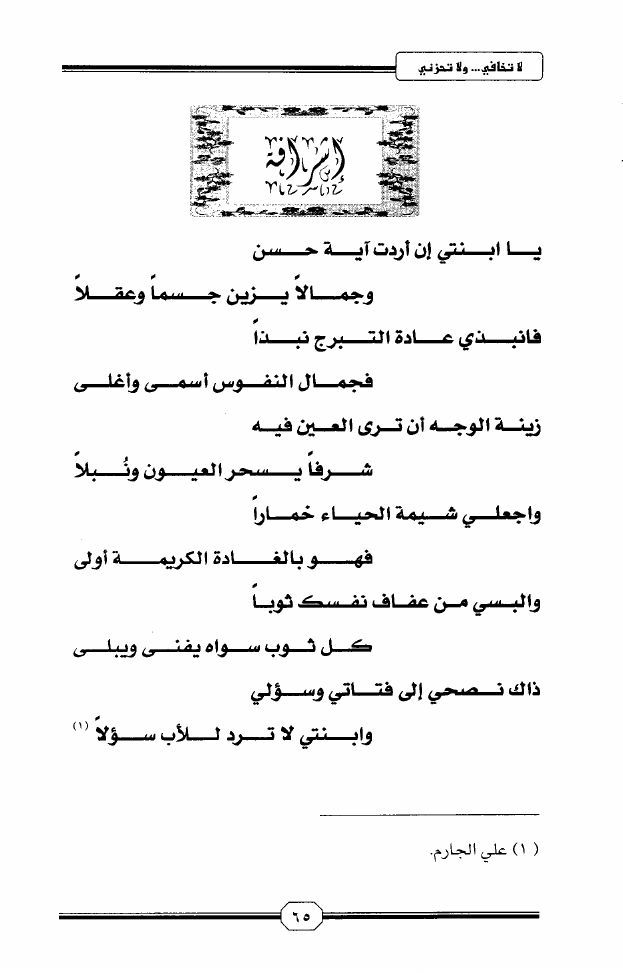 لا تخافي... ولا تحزني
إشراقة
يا ابنتي إن أردت آية حسن
وجمالاً يزين جسماً وعقلاً
فانبذي عادة التبرج نبذاً
فجمال النفوس أسمى وأغلى
زينة الوجه أن ترى العين فيه
شرفاً يسحر العيون ونُبلاً
واجعلي شيمة الحياء خماراً
فهو بالغادة الكريمة أولى
والبسي من عفاف نفسك ثوباً
كل ثوب سواه يفنى ويبلى
ذاك نصحي إلى فتاتي وسؤلي
وابنتي لا ترد للأب سؤلاً (١)
(١) علي الجارم.
٦٥